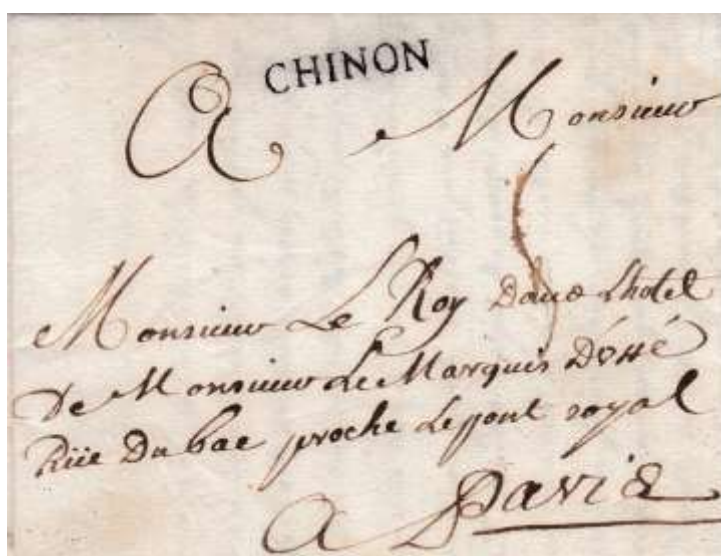 CHINON
A Monsieur
Monsieur Le Roy Dans Lhotel
De Monsieur Le Marquis D'ussé
Rüe Du bac proche Le pont royal
A Paris